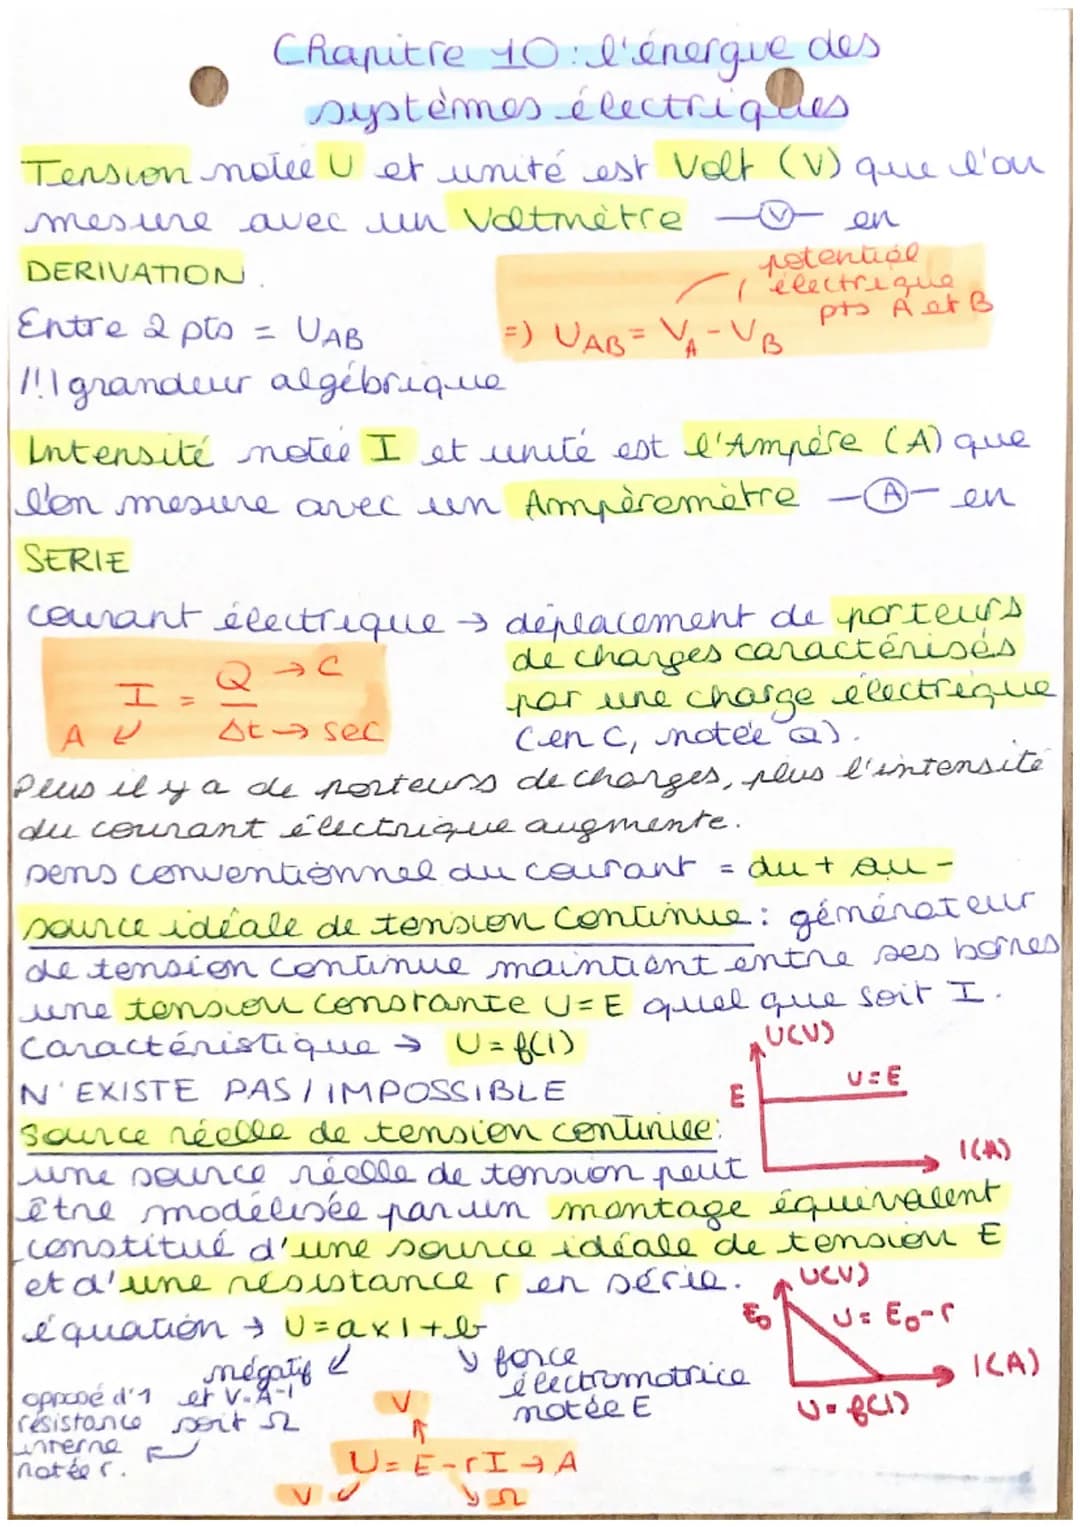 Chapitre 10 : l'énergie des
systèmes électriques
Tension notée U et unité est Volt (V) que l'on
mesure avec un Voltmètre -(V)- en
DERIVATION.
potentiel
électrique
pts A et B
Entre 2 pts = UAB
=) UAB = VA - VB
/!\ grandeur algébrique
Intensité notée I et unité est l'Ampère (A) que
l'on mesure avec un Ampèremètre -(A)- en
SERIE
courant électrique → déplacement de porteurs
de charges caractérisés
par une charge électrique
(en C, notée Q).
I = Q → C
A ↙ Δt → sec
Plus il y a de porteurs de charges, plus l'intensité
du courant électrique augmente.
sens conventionnel du courant = du + au -
source idéale de tension continue : générateur
de tension continue maintient entre ses bornes
une tension constante U = E quel que soit I.
Caractéristique → U = f(I)
N'EXISTE PAS / IMPOSSIBLE
U(V)
E
U = E
I(A)
Source réelle de tension continue :
une source réelle de tension peut
être modélisée par un montage équivalent
constitué d'une source idéale de tension E
et d'une résistance r en série.
équation → U = a x I + b
négatif ↙
et V.A-1
soit Ω
↘ force
électromotrice
notée E
opposé d'1
résistance
interne
notée r.
U(V)
E0
U = E0 - r
I(A)
U = f(I)
V
↑
U = E - r I → A
V ↙ ↘ Ω